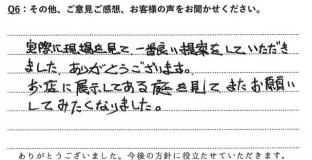 Q6：その他、ご意見ご感想、お客様の声をお聞かせください。
実際に現場を見て、一番良い提案をしていただき
ました。ありがとうございます。
お店に展示してある庭を見て、またお願い
してみたくなりました。
ありがとうございました。今後の方針に役立たせていただきます。